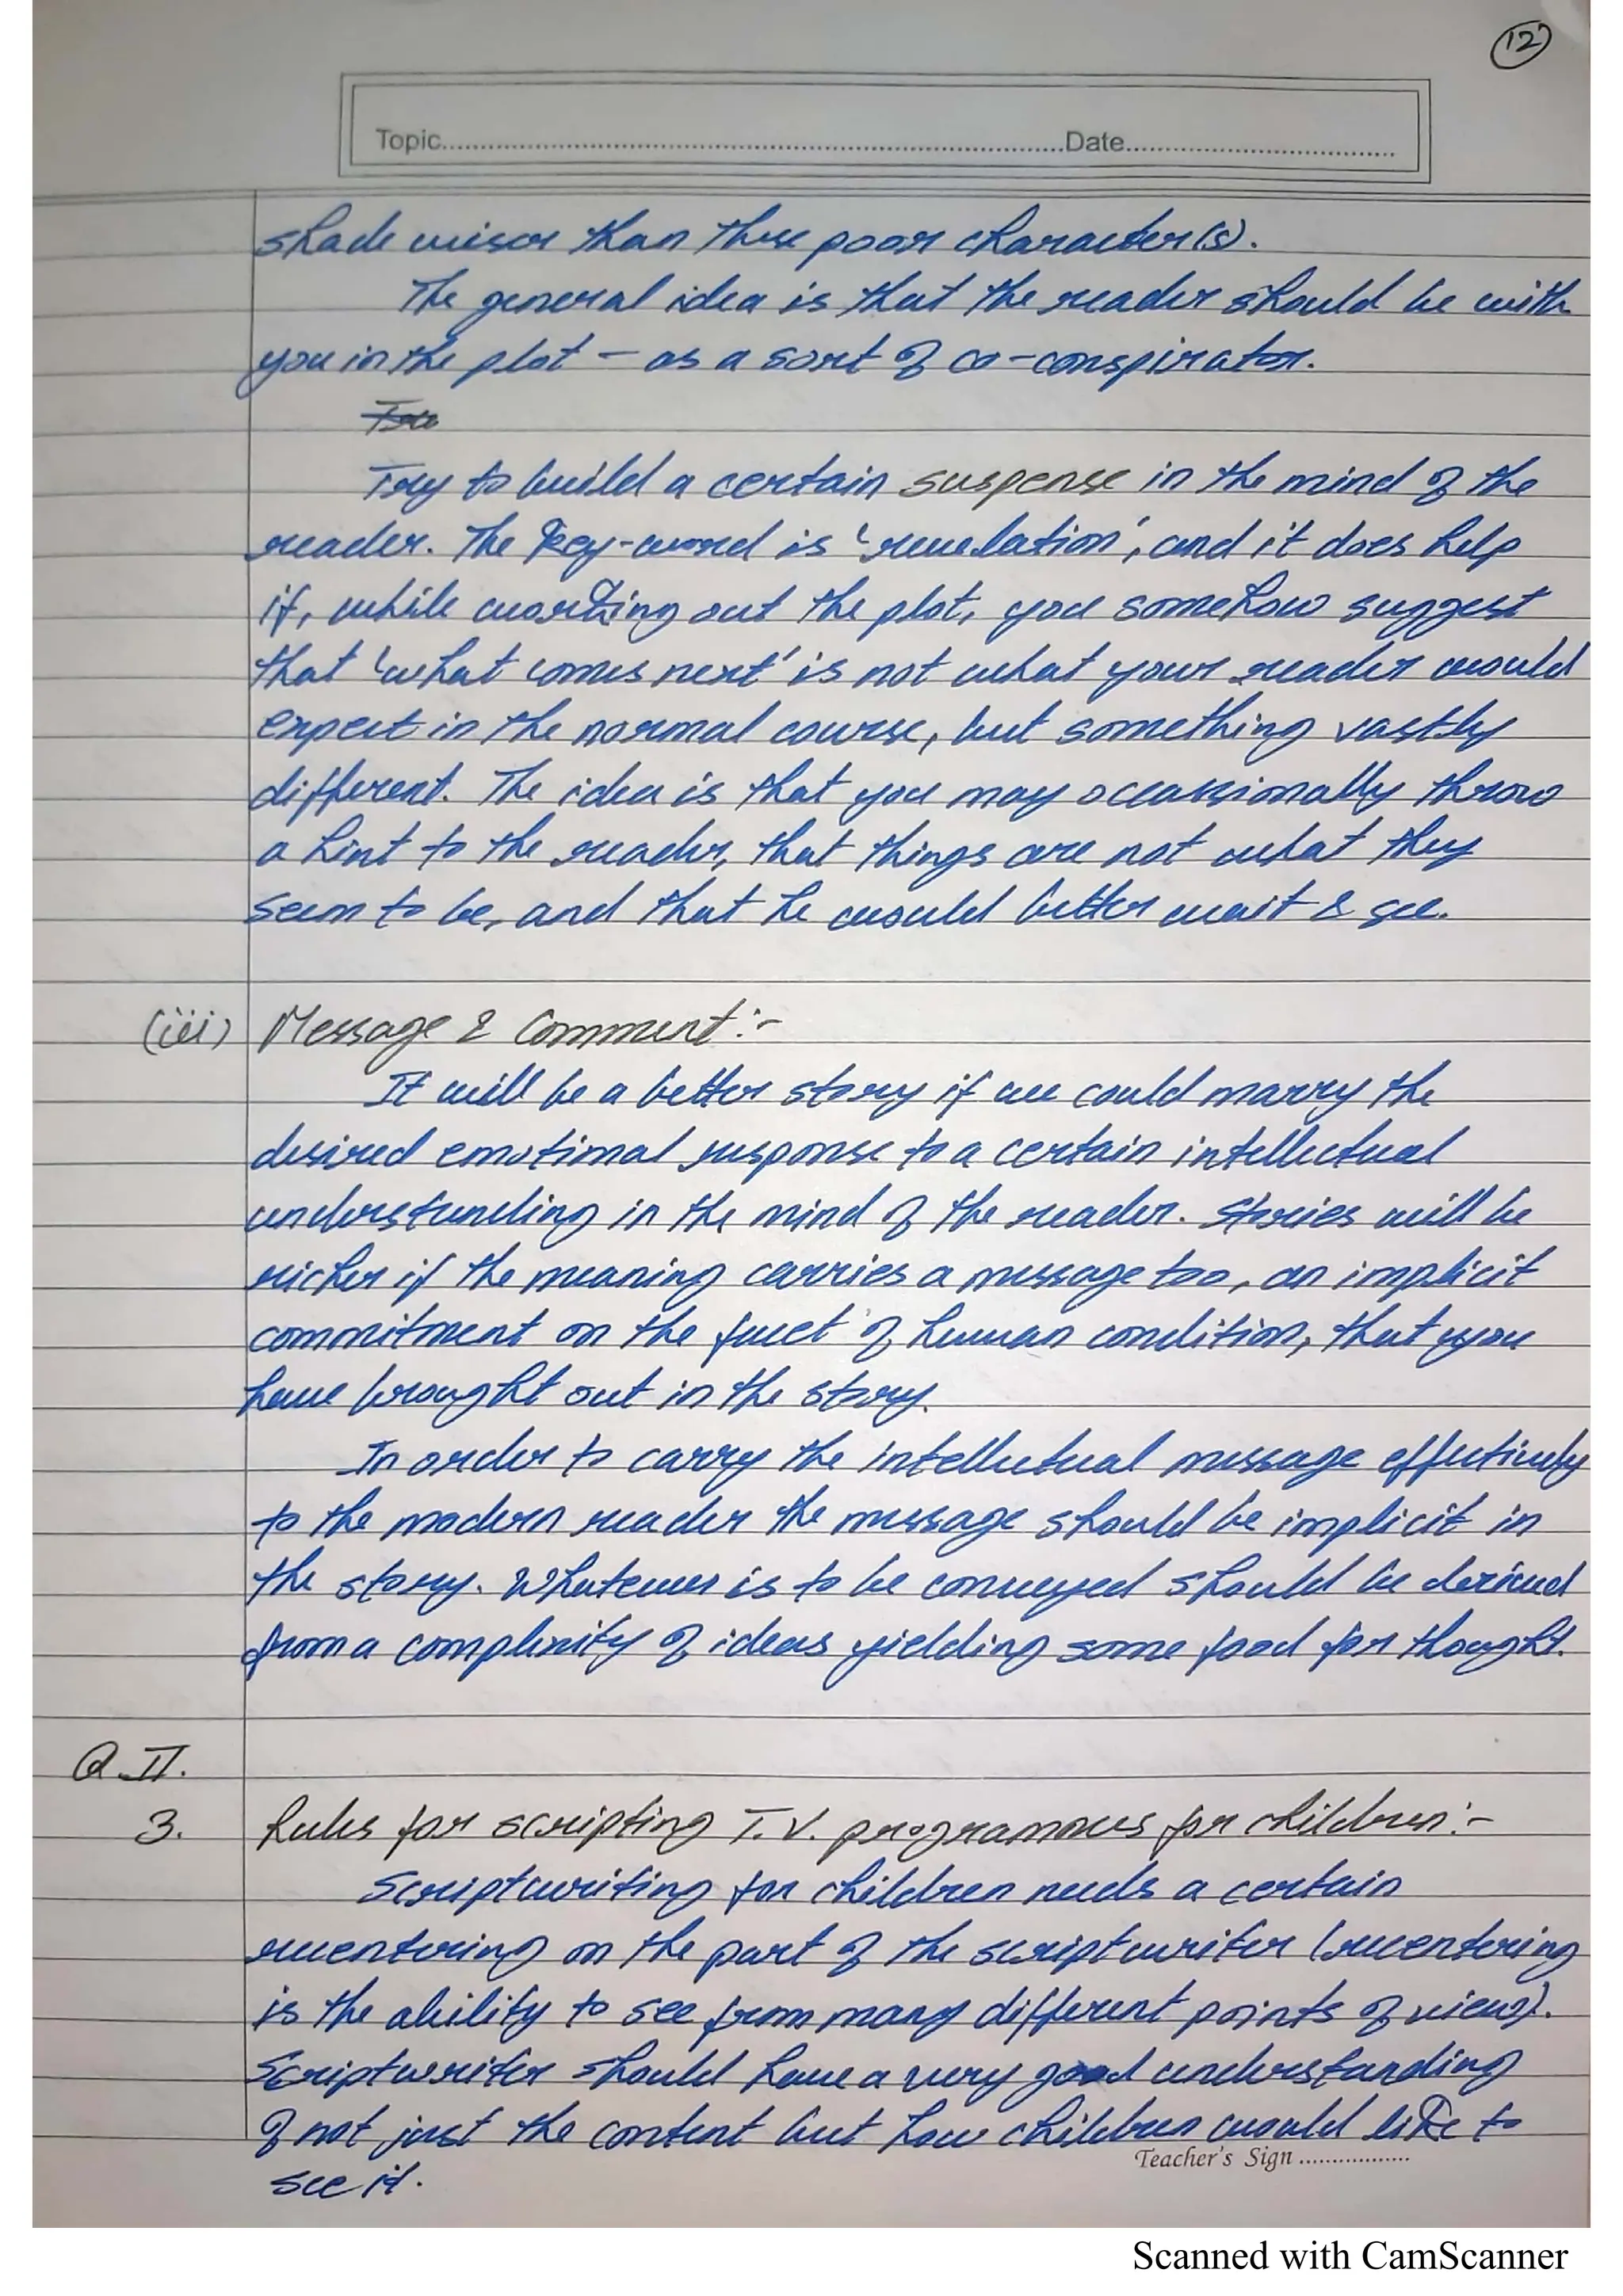 12
Topic..........Date..........
shade wiser than those poor character(s).
The general idea is that the reader should be with
you in the plot – as a sort of co-conspirator.
Try to build a certain suspense in the mind of the
reader. The key-word is 'revelation', and it does help
if, while working out the plot, you somehow suggest
that 'what comes next' is not what your reader would
expect in the normal course, but something vastly
different. The idea is that you may occassionally throw
a hint to the reader, that things are not what they
seem to be, and that he would better wait & see.
(iii) Message & Comment:-
It will be a better story if we could marry the
desired emotional response to a certain intellectual
understanding in the mind of the reader. Stories will be
richer if the meaning carries a message too, an implicit
commitment on the facet of human condition, that you
have brought out in the story.
In order to carry the intellectual message effectively
to the modern reader the message should be implicit in
the story. Whatever is to be conveyed should be derived
from a complexity of ideas yielding some food for thought.
Q.II.
3. Rules for scripting T.V. programmes for children:-
Scriptwriting for children needs a certain
recentering on the part of the scriptwriter (recentering
is the ability to see from many different points of view).
Scriptwriter should have a very good understanding
of not just the content but how children would like to
Teacher's Sign ..................
see it.
Scanned with CamScanner